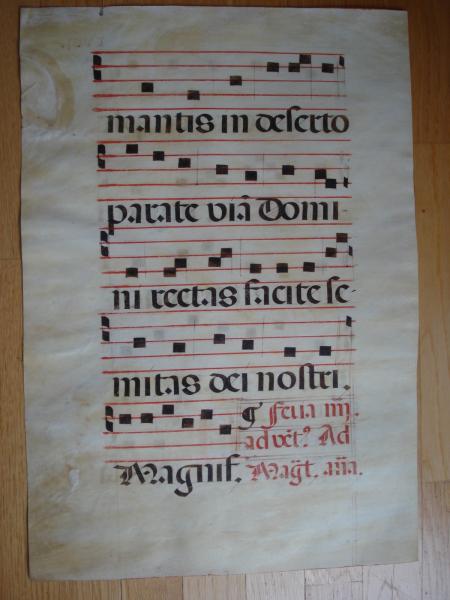 mantis in deserto
parate viā Domi-
ni rectas facite se-
mitas dei nostri.
feria iiij.
advēt⁹. Ad
Magnif. Mag̃t. aña.